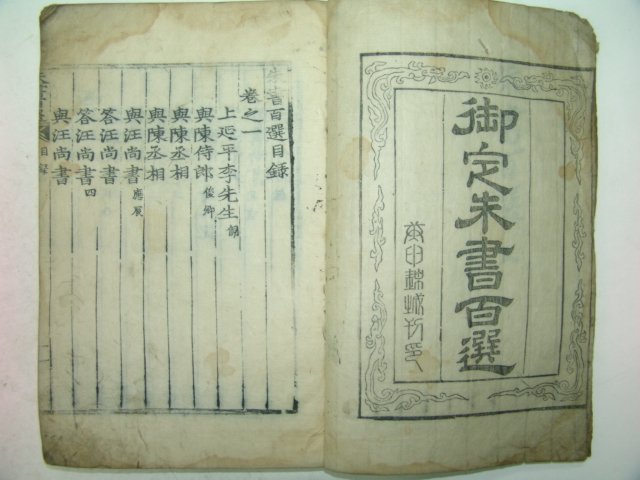 御定朱書百選
朱書百選目録
卷之一
上延平李先生 侗
與陳侍郎 俊卿
與陳丞相
與陳丞相
與汪尚書 應辰
答汪尚書
答汪尚書 四
與汪尚書